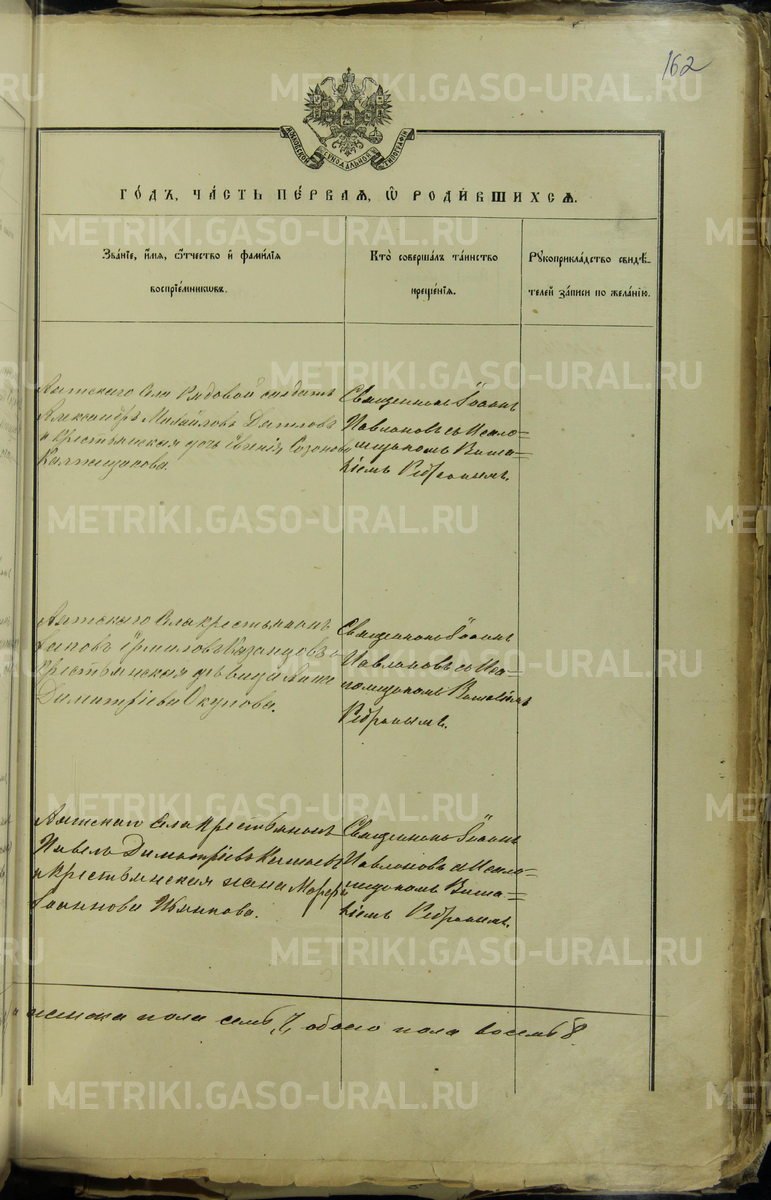 162
МОСКОВСКОЙ СѴНОДАЛЬНОЙ ТИПОГРАФІИ
ГОДЪ, ЧАСТЬ ПЕРВАЯ, Ѡ РОДИВШИХСЯ.
Званіе, имя, отчество и фамилія
воспріемниковъ.
Кто совершалъ таинство
крещенія.
Рукоприкладство свидѣ-
телей записи по желанію.
Аятскаго села Рядовой солдатъ
Александръ Михайловъ
и крестьянская дочь Евгенія
Священникъ Іоаннъ
съ Псало-
мщикомъ Вита-
ліемъ Ребринымъ.
Аятскаго села крестьянинъ
Ермиловъ Казанцовъ
крестьянская дѣвица Анна
Димитріева Окулова.
Священникъ Іоаннъ
съ Пса-
ломщикомъ Виталіемъ
Ребринымъ.
Аятскаго села крестьянинъ
Павелъ Димитріевъ
и крестьянская жена Марѳа
Іоаннова
Священникъ Іоаннъ
съ Псало-
мщикомъ Вита-
ліемъ Ребринымъ.
женска пола семь 7, обоего пола восемь 8.
METRIKI.GASO-URAL.RU